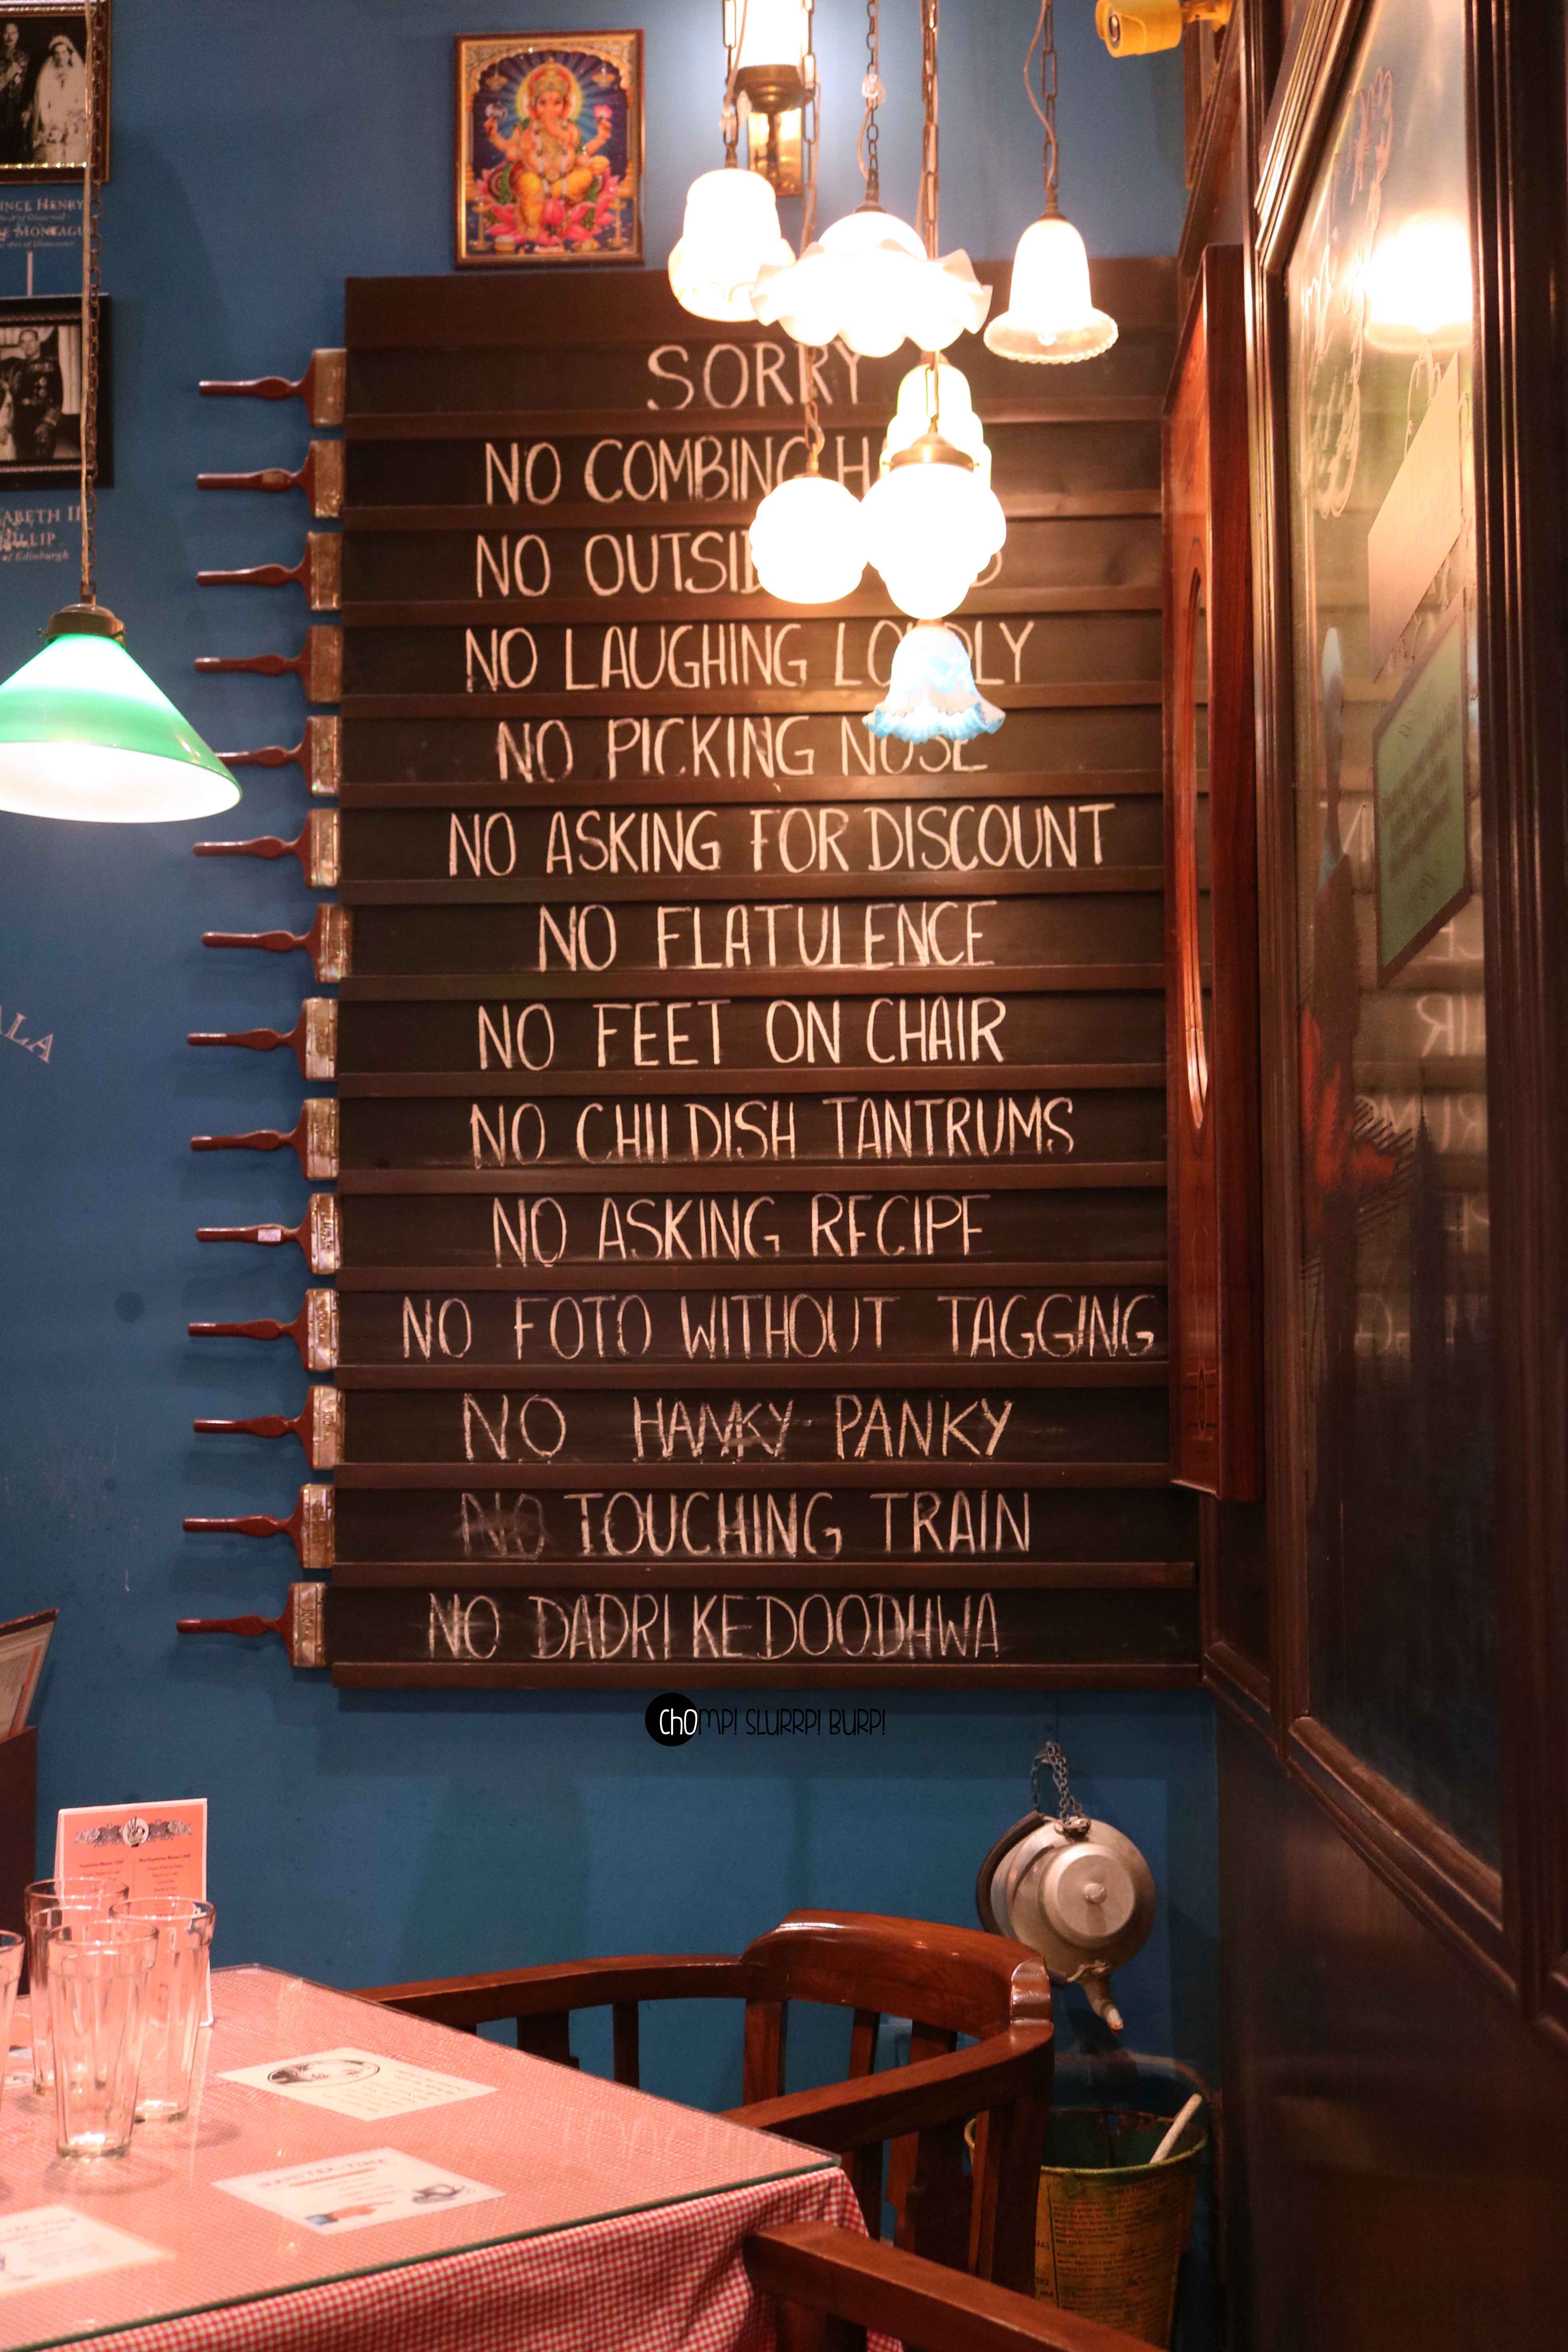 INCE HENRY
E MONTAGU
ABETH II
of Edinburgh
ALA
SORRY
NO COMBING H
NO OUTSID
NO LAUGHING LOUDLY
NO PICKING NOSE
NO ASKING FOR DISCOUNT
NO FLATULENCE
NO FEET ON CHAIR
NO CHILDISH TANTRUMS
NO ASKING RECIPE
NO FOTO WITHOUT TAGGING
NO HANKY-PANKY
NO TOUCHING TRAIN
NO DADRI KE DOODHWA
ChOMP! SLURRP! BURP!